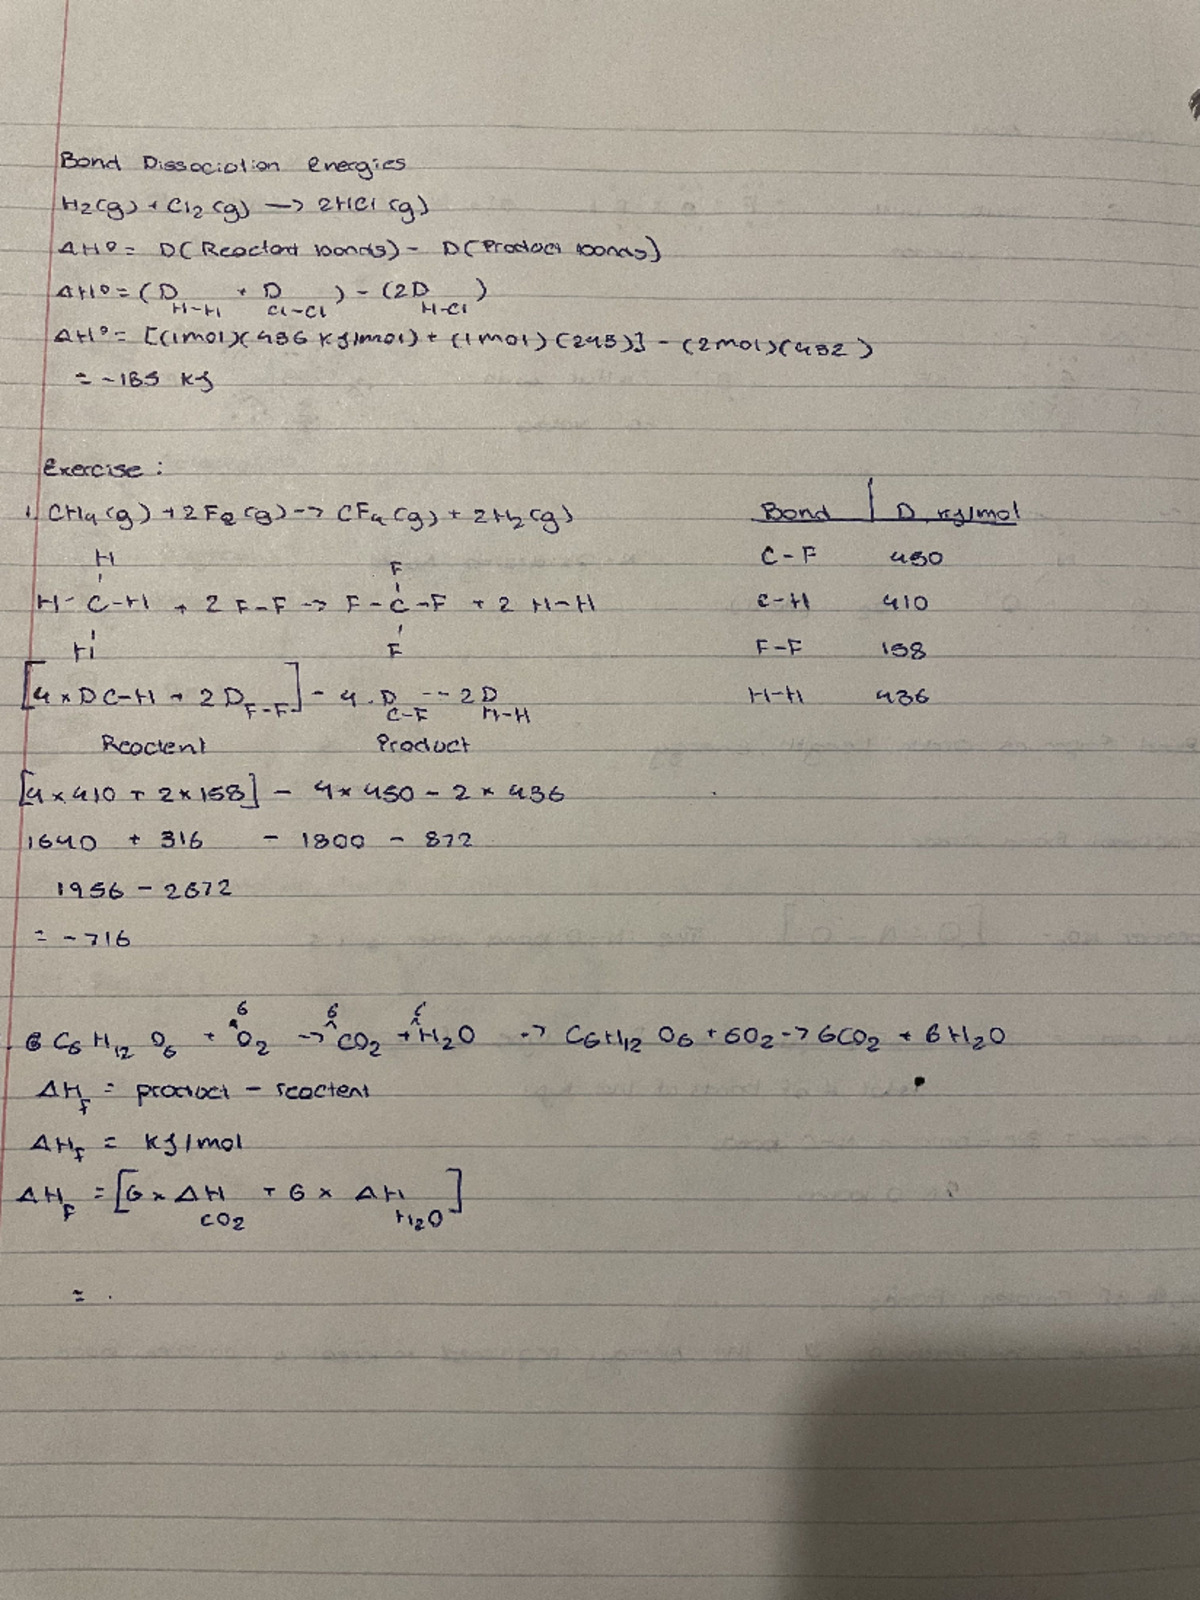 Bond Dissociation energies
H2(g) + Cl2(g) → 2HCl(g)
ΔH° = D(Reactant bonds) - D(Product bonds)
ΔH° = (D H-H + D Cl-Cl) - (2D H-Cl)
ΔH° = [(1mol)(436 KJ/mol) + (1mol)(243)] - (2mol)(432)
= -185 KJ
Exercise :
1. CH4(g) + 2F2(g) → CF4(g) + 2H2(g)
Bond D, KJ/mol
H F
C-F 450
H-C-H + 2 F-F → F-C-F + 2 H-H
C-H 410
H F
F-F 158
[4×D C-H + 2D F-F] - 4.D C-F -- 2D H-H
H-H 436
Reactent Product
[4×410 + 2×158] - 4×450 - 2×436
1640 + 316 - 1800 - 872
1956 - 2672
= -716
6 6 6
C6H12O6 + O2 → CO2 + H2O → C6H12O6 + 6O2 → 6CO2 + 6H2O
ΔHf = product - reactent
ΔHf = KJ/mol
ΔHF = [6 × ΔH CO2 + 6 × ΔH H2O]
= .